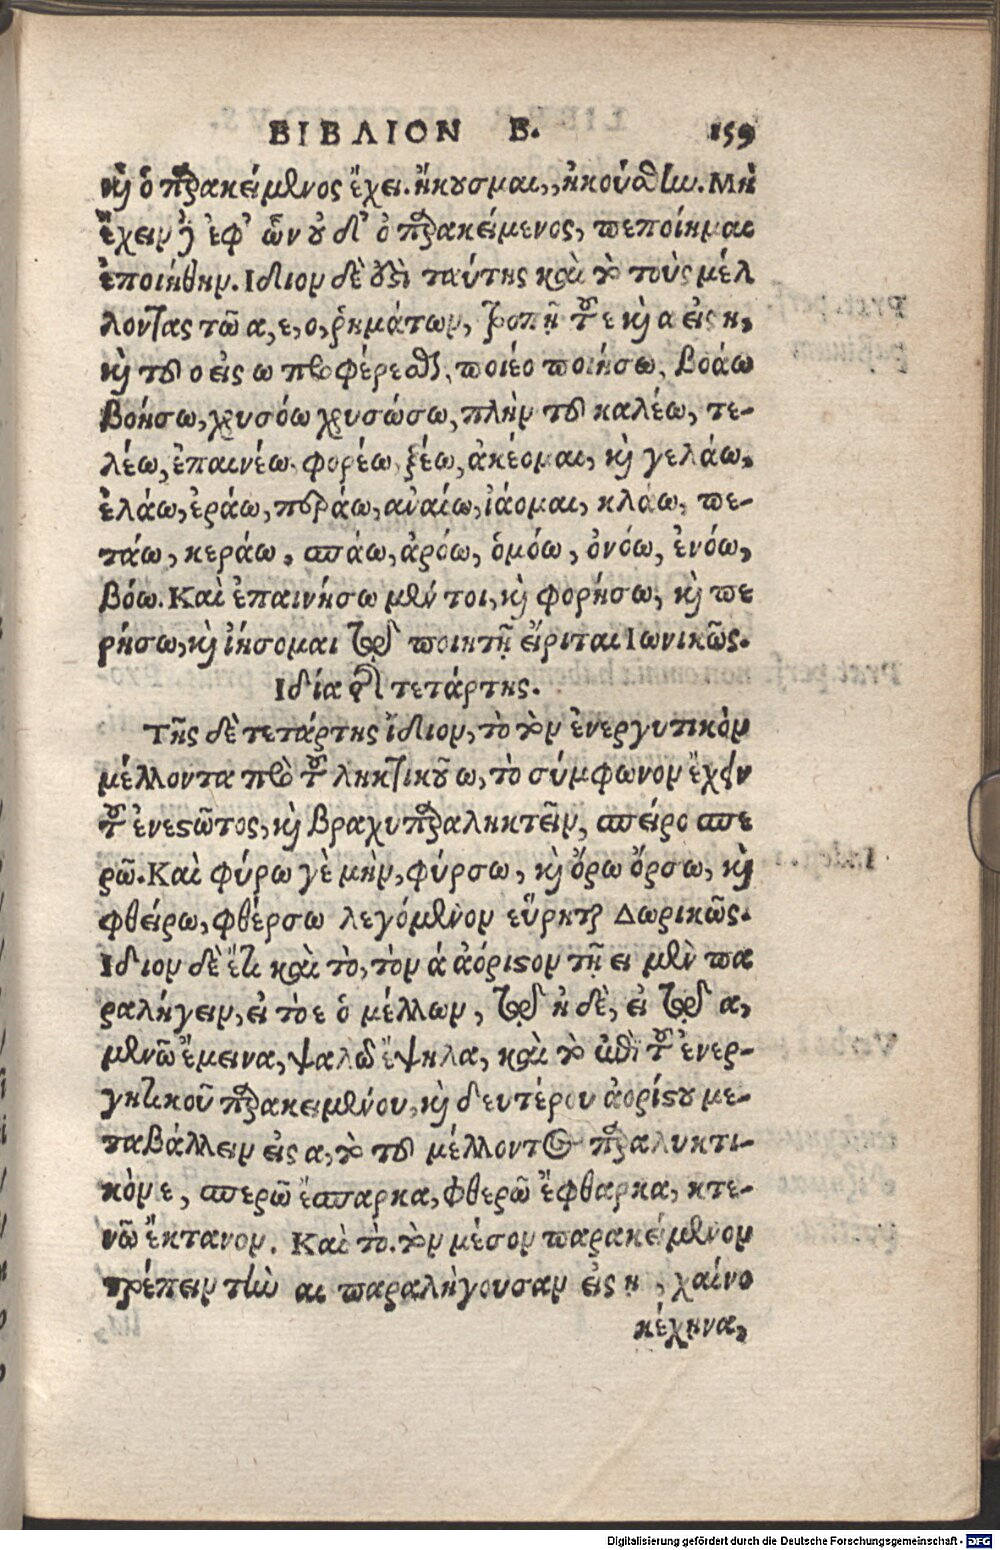 ΒΙΒΛΙΟΝ Β. 159
καὶ ὁ παρακείμενος ἔχει. ἤκουσμαι, ἠκούσθην. Μὴ
ἔχειν δὲ ἐφ' ὧν οὐδ' ὁ παρακείμενος, πεποίημαι
ἐποιήθην. Ιδιον δὲ ἐστὶ ταύτης καὶ τὸ τοὺς μέλ
λοντας τῶ α, ε, ο, ῥημάτων, τροπῇ τοῦ ε καὶ α εἰς η,
καὶ τοῦ ο εἰς ω προφέρεσθαι, ποιέο ποιήσω, βοάω
βοήσω, χυσόω χρυσώσω, πλὴν τοῦ καλέω, τε-
λέω, ἐπαινέω, φορέω, ξέω, ἀκέομαι, καὶ γελάω,
ἐλάω, ἐράω, περάω, ἀναίω, ἰάομαι, κλάω, πε-
τάω, κεράω, σπάω, ἀρόω, ὁμόω, ὀνόω, ἐνόω,
βόω. Καὶ ἐπαινήσω μέν τοι, καὶ φορήσω, καὶ πε
ρήσω, καὶ ἰήσομαι παρὰ ποιητῇ εἴρηται Ιωνικῶς.
Ιδία τῆς τετάρτης.
Τῆς δὲ τετάρτης ἴδιον, τὸ τὸν ἐνεργυτικὸν
μέλλοντα πρὸ τοῦ ληκτικοῦ ω, τὸ σύμφωνον ἔχειν
τοῦ ἐνεστῶτος, καὶ βραχυπαραληκτεῖν, σπείρο σπε
ρῶ. Καὶ φύρω γὲ μὴν, φύρσω, καὶ ὄρω ὄρσω, καὶ
φθείρω, φθέρσω λεγόμενον εὕρηται Δωρικῶς.
Ιδιον δὲ ἔτι καὶ τὸ, τὸν ά ἀόριστον τῇ ει μὲν πα
ραλήγειν, εἰ τὸ ε ὁ μέλλων, παρὰ η δὲ, εἰ παρὰ α,
μενῶ ἔμεινα, ψαλῶ ἔψηλα, καὶ τὸ ἐπὶ τοῦ ἐνερ-
γητικοῦ παρακειμένου, καὶ δευτέρου ἀορίστου με-
ταβάλλειν εἰς α, τὸ τοῦ μέλλοντος παραλυκτι-
κὸν ε, σπερῶ ἔσπαρκα, φθερῶ ἔφθαρκα, κτε-
νῶ ἔκτανον. Καὶ τὸ. τὸν μέσον παρακείμενον
τρέπειν τὴν αι παραλήγουσαν εἰς η, χαίνο
κέχηνα,
Digitalisierung gefördert durch die Deutsche Forschungsgemeinschaft - DFG